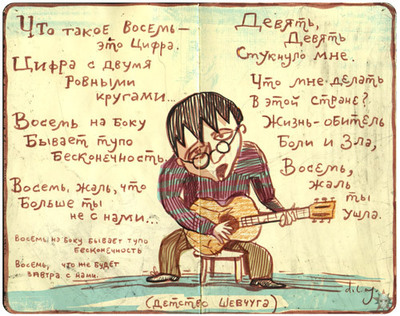 Что такое Восемь-
это Цифра.
Цифра с двумя
ровными
кругами...
Восемь на боку
Бывает тупо
Бесконечность
Восемь, жаль, что
Больше ты
не с нами...
Восемь на боку бывает тупо
бесконечность
Восемь, что же будет
завтра с нами.
Девять,
Девять
Стукнуло мне.
Что мне делать
В этой стране?
Жизнь-обитель
Боли и Зла,
Восемь,
жаль
ты
ушла.
(Детство Шевчуга)